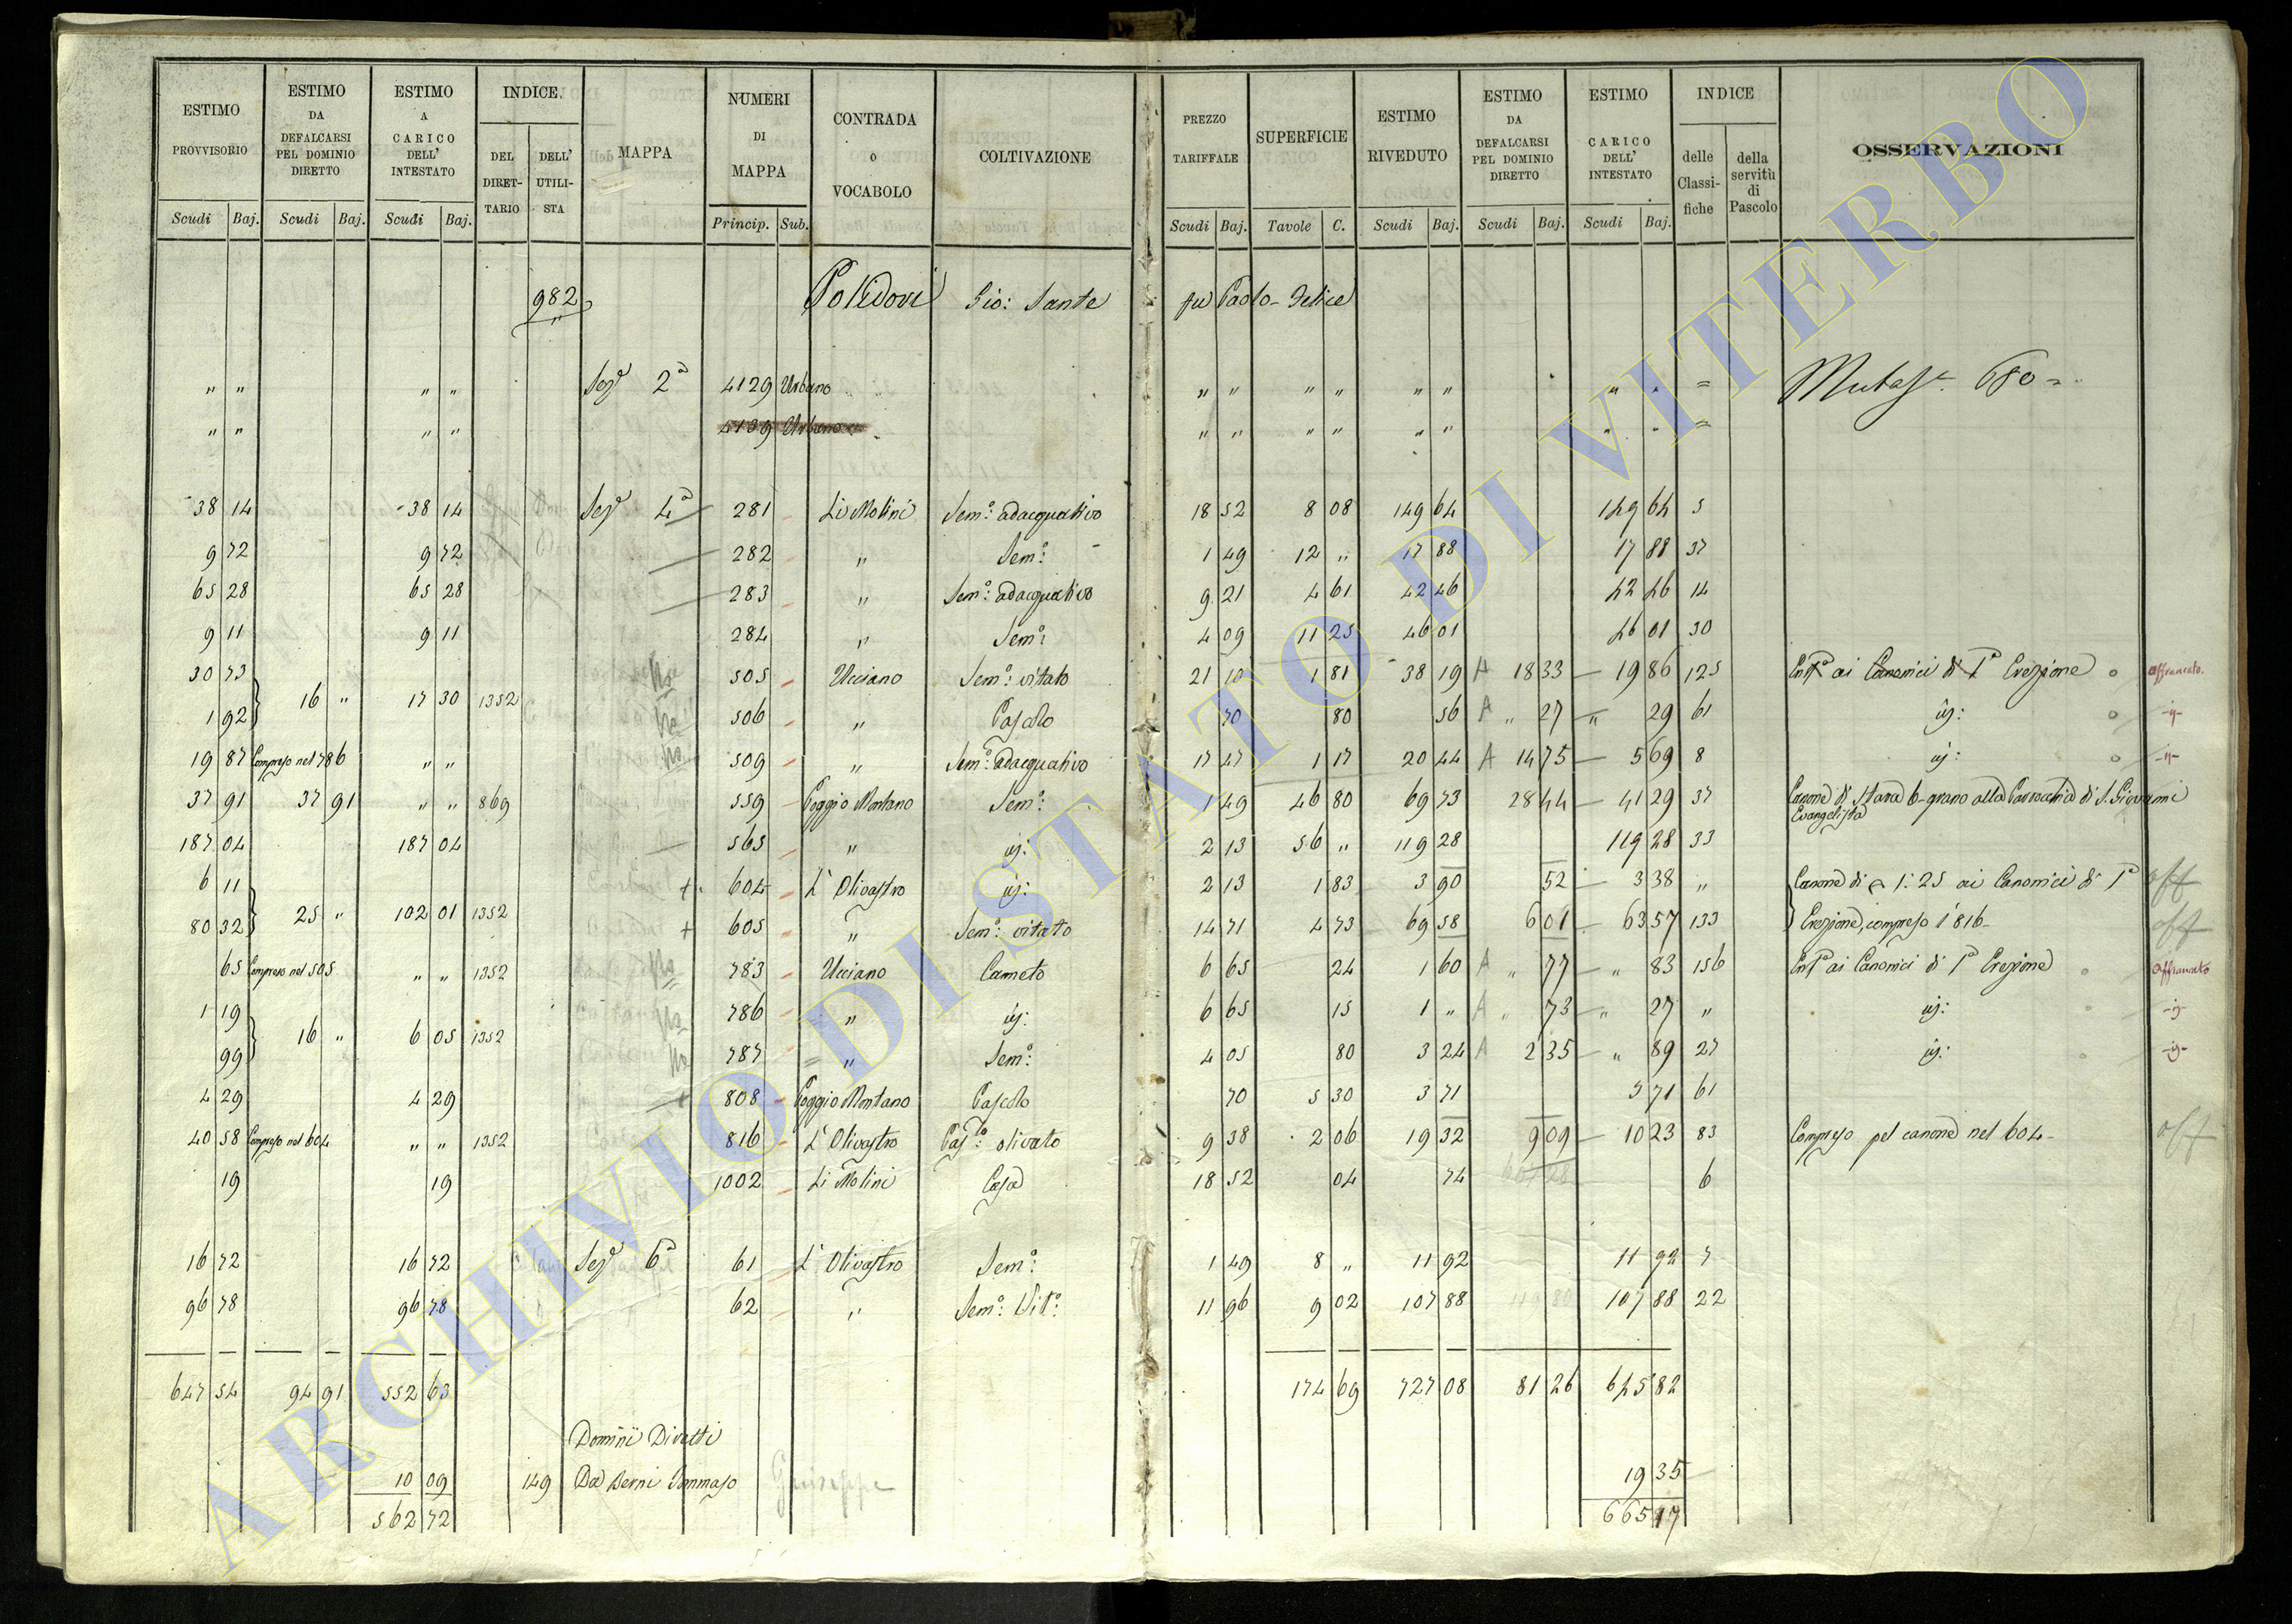 ESTIMO PROVVISORIO Scudi Baj. ESTIMO DA DEFALCARSI PEL DOMINIO DIRETTO Scudi Baj. ESTIMO A CARICO DELL' INTESTATO Scudi Baj. INDICE. DEL DIRETTARIO DELL' UTILISTA MAPPA NUMERI DI MAPPA Princip. Sub. CONTRADA O VOCABOLO COLTIVAZIONE PREZZO TARIFFALE Scudi Baj. SUPERFICIE Tavole C. ESTIMO RIVEDUTO Scudi Baj. ESTIMO DA DEFALCARSI PEL DOMINIO DIRETTO Scudi Baj. ESTIMO CARICO DELL' INTESTATO Scudi Baj. INDICE delle Classifiche della servitù di Pascolo OSSERVAZIONI
982 Polidori Gio: Sante fu Paolo-Felice
" " " " Sezᵉ 2ᵃ 4129 Urbano " " " " " " " " =
" " " " Urbano " " " " " " " " =
38 14 38 14 Sezᵉ 4ᵃ 281 Li Molini Semº: adacquativo 18 52 8 08 149 64 149 64 5
9 72 9 72 282 " Semº: 1 49 12 " 17 88 17 88 37
65 28 65 28 283 " Semº: adacquativo 9 21 4 61 42 46 42 46 14
9 11 9 11 284 " Semº: 4 09 11 25 46 01 46 01 30
30 73 505 Ucciano Semº: vitato 21 10 1 81 38 19 A 18 33 19 86 125 ai Canonici di Iª Erezione affrancato.
16 " 17 30 1352
1 92 506 " Pascolo 70 80 56 A " 27 " 29 61 iij: -ij-
19 87 Compreso nel 786 " " 509 " Semº: adacquativo 17 47 1 17 20 44 A 14 75 5 69 8 iij: -ij-
37 91 37 91 " " 869 559 Poggio Montano Semº: 1 49 46 80 69 73 28 44 41 29 37 Canone di stara 6 grano alla Parrocchia di S. Giovanni
Evangelista
187 04 187 04 565 " iij: 2 13 56 " 119 28 119 28 33
6 11 604 L'Olivastro iij: 2 13 1 83 3 90 52 3 38 " Canone di 1:25 ai Canonici di Iª off
25 " 102 01 1352
80 32 605 " Semº: vitato 14 71 4 73 69 58 6 01 63 57 133 Erezione, compreso l'816 off
65 Compreso nel 505 " " 1352 783 Ucciano Canneto 6 65 24 1 60 A " 77 " 83 156 ai Canonici di Iª Erezione affrancato
1 19 786 " iij: 6 65 15 1 " A " 73 " 27 " iij: -ij-
16 " 6 05 1352
99 787 " Semº: 4 05 80 3 24 A 2 35 " 89 27 iij: -ij-
4 29 4 29 808 Poggio Montano Pascolo 70 5 30 3 71 3 71 61
40 58 Compreso nel 604 " " 1352 816 L'Olivastro Pasº: olivato 9 38 2 06 19 32 9 09 10 23 83 Compreso pel canone nel 604 off
19 19 1002 Li Molini Casa 18 52 04 74 6
16 72 16 72 Sezᵉ 6ᵃ 61 L'Olivastro Semº: 1 49 8 " 11 92 11 92 7
96 78 96 78 62 " Semº: Vitº: 11 96 9 02 107 88 107 88 22
647 54 94 91 552 63 174 69 727 08 81 26 645 82
Dominii Diretti
10 09 149 Da Berni Tommaso Giuseppe 19 35
562 72 665 17
ARCHIVIO DI STATO DI VITERBO